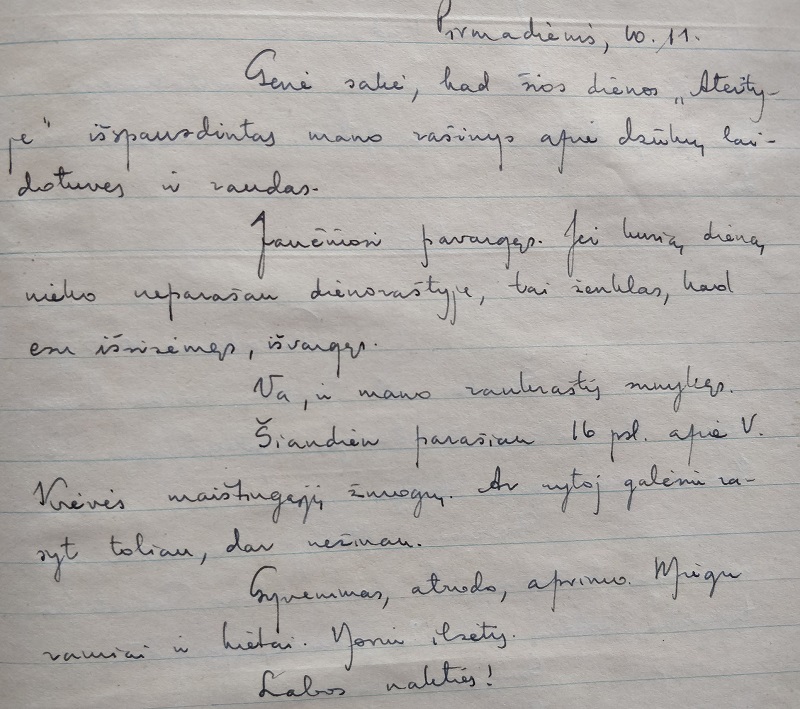 Pirmadienis, 10. 11.
Genė sakė, kad šios dienos „Ateity-
je“ išspausdintas mano rašinys apie dzūkų lai-
dotuves ir raudas.
Jaučiuosi pavargęs. Jei kurią dieną
nieko neparašau dienoraštyje, tai ženklas, kad
esu išsisėmęs, išvargęs.
Va, ir mano rankraštį sunykęs.
Šiandien parašiau 16 psl. apie V.
Krėvės maištingąjį žmogų. Ar rytoj galėsiu ra-
šyt toliau, dar nežinau.
Gyvenimas, atrodo, aprimo. Miegu
ramiai ir kietai. Noriu ilsėtis.
Labos nakties!